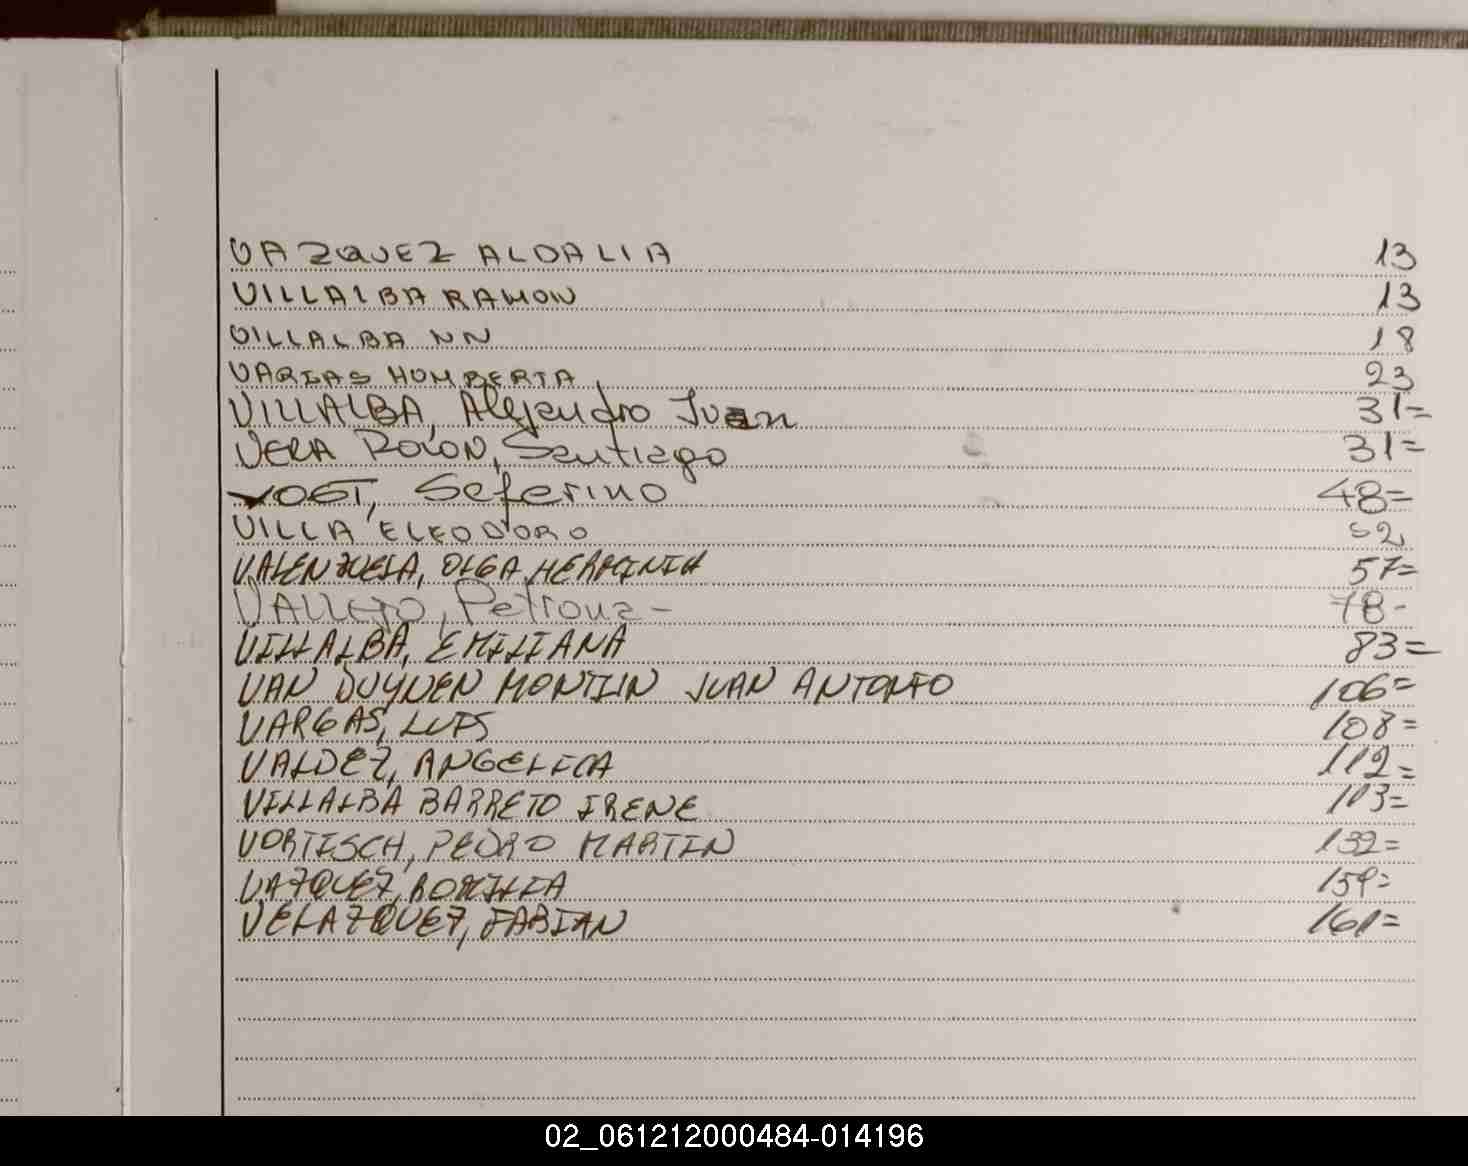 VAZQUEZ ALDALIA 13
VILLALBA RAMON 13
VILLALBA NN 18
VARGAS HOMBERTA 23
VILLALBA, Alejandro Juan 31=
VERA ROLON, Santiago 31=
VOGT, Seferino 48=
VILLA ELEODORO 52
VALENZUELA, OLGA HERMINIA 57=
VALLEJO, Petrona - 78-
VILLALBA, EMILIANA 83=
VAN DUYNEN MONTIJN JUAN ANTONIO 106=
VARGAS, LUIS 108=
VALDEZ, ANGELICA 112=
VILLALBA BARRETO IRENE 113=
VORTISCH, PEDRO MARTIN 132=
VAZQUEZ, ROMILIA 159=
VELAZQUEZ, FABIAN 161=
02_061212000484-014196